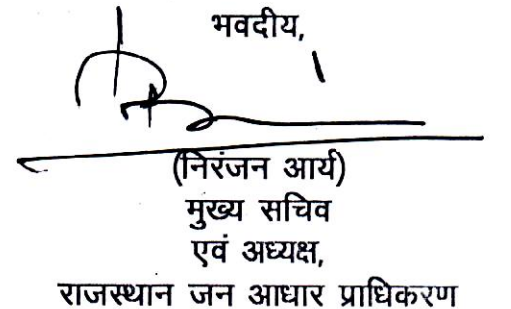 भवदीय,
(निरंजन आर्य)
मुख्य सचिव
एवं अध्यक्ष,
राजस्थान जन आधार प्राधिकरण